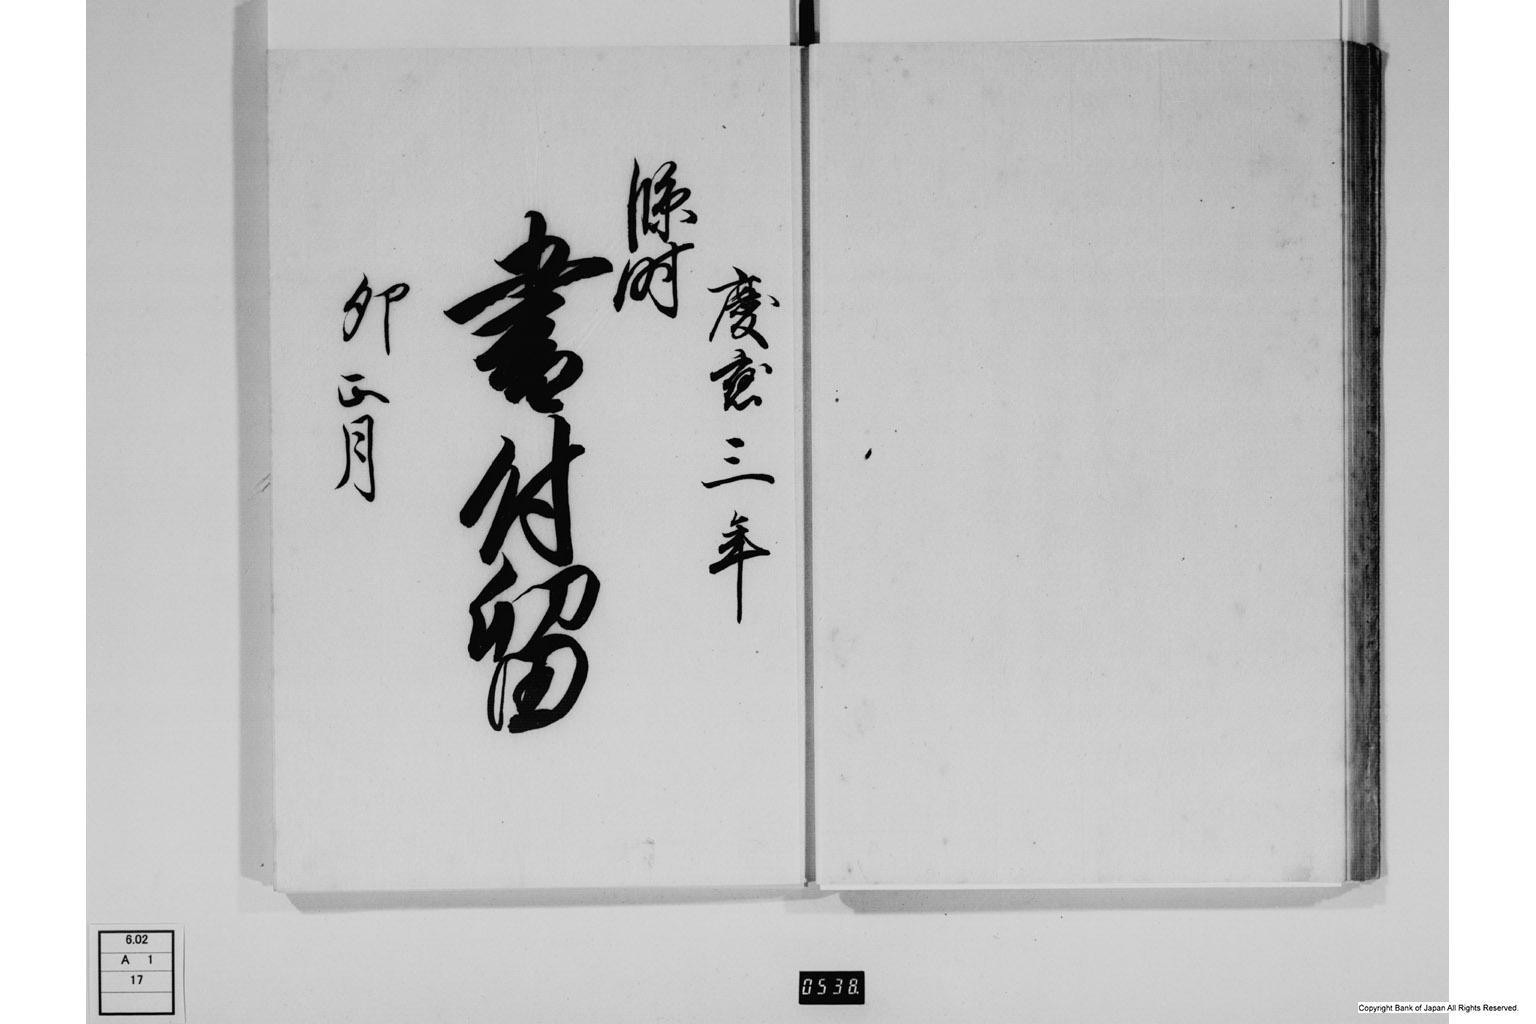 慶應三年
臨時
書付留
卯正月
6.02
A 1
17
0538.
Copyright Bank of Japan All Rights Reserved.